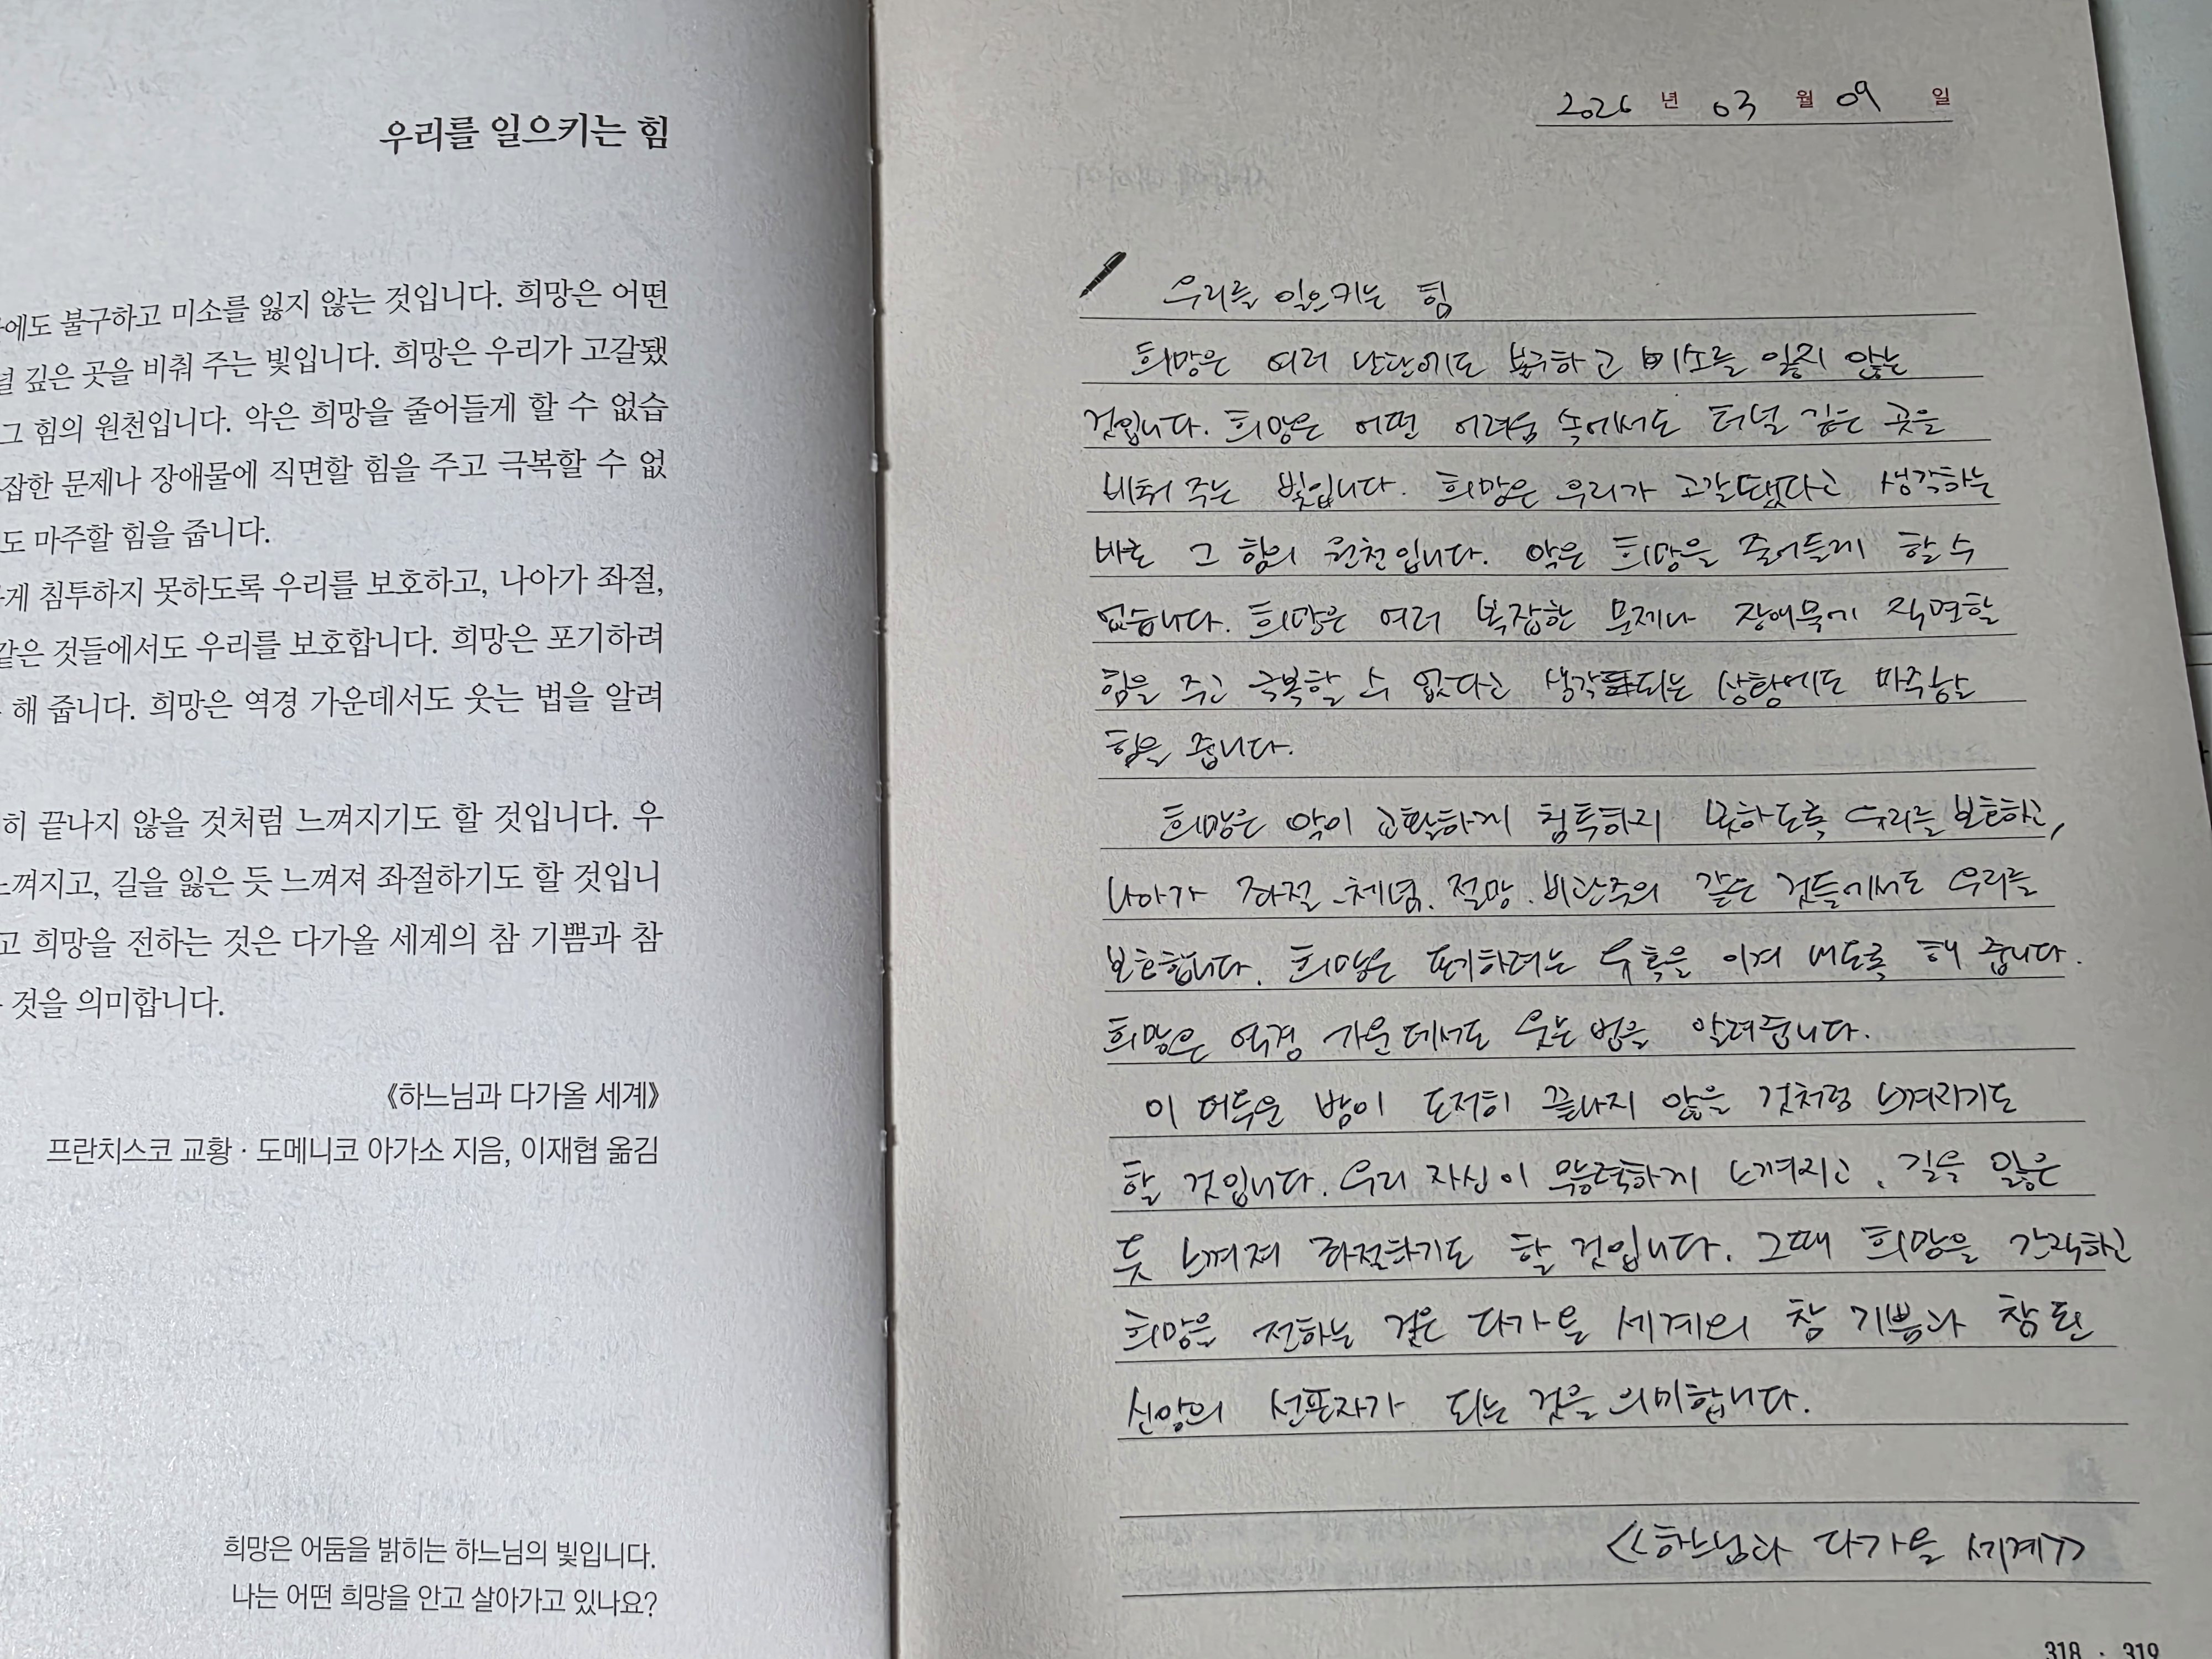 우리를 일으키는 힘
에도 불구하고 미소를 잃지 않는 것입니다. 희망은 어떤
널 깊은 곳을 비춰 주는 빛입니다. 희망은 우리가 고갈됐
그 힘의 원천입니다. 악은 희망을 줄어들게 할 수 없습
잡한 문제나 장애물에 직면할 힘을 주고 극복할 수 없
도 마주할 힘을 줍니다.
게 침투하지 못하도록 우리를 보호하고, 나아가 좌절,
같은 것들에서도 우리를 보호합니다. 희망은 포기하려
해 줍니다. 희망은 역경 가운데서도 웃는 법을 알려
히 끝나지 않을 것처럼 느껴지기도 할 것입니다. 우
느껴지고, 길을 잃은 듯 느껴져 좌절하기도 할 것입니
고 희망을 전하는 것은 다가올 세계의 참 기쁨과 참
것을 의미합니다.
《하느님과 다가올 세계》
프란치스코 교황 · 도메니코 아가소 지음, 이재협 옮김
희망은 어둠을 밝히는 하느님의 빛입니다.
나는 어떤 희망을 안고 살아가고 있나요?
2026 년 03 월 09 일
우리를 일으키는 힘
희망은 여러 난단에도 불구하고 미소를 잃지 않는
것입니다. 희망은 어떤 어려움 속에서도 터널 깊은 곳을
비춰 주는 빛입니다. 희망은 우리가 고갈됐다고 생각하는
바로 그 힘의 원천입니다. 악은 희망을 줄어들게 할 수
없습니다. 희망은 여러 복잡한 문제나 장애물에 직면할
힘을 주고 극복할 수 없다고 생각되는 상황에도 마주할
힘을 줍니다.
희망은 악이 교활하게 침투하지 못하도록 우리를 보호하고,
나아가 좌절, 체념, 절망, 비관주의 같은 것들에서도 우리를
보호합니다. 희망은 포기하려는 유혹을 이겨 내도록 해 줍니다.
희망은 역경 가운데서도 웃는 법을 알려줍니다.
이 어두운 밤이 도저히 끝나지 않을 것처럼 느껴지기도
할 것입니다. 우리 자신이 무능력하게 느껴지고, 길을 잃은
듯 느껴져 좌절하기도 할 것입니다. 그때 희망을 간직하고
희망을 전하는 것은 다가올 세계의 참 기쁨과 참된
신앙의 선포자가 되는 것을 의미합니다.
<<하느님과 다가올 세계>>
318 · 319